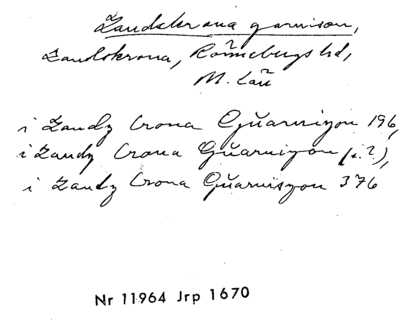 Landskrona garnison,
Landskrona, Rönnebergs hd,
M. län
i Landz Crona Gŭarnizon 196,
i Landz Crona Gŭarnizon (i.?),
i Landz Crona Gŭarniszon 376
Nr 11964 Jrp 1670